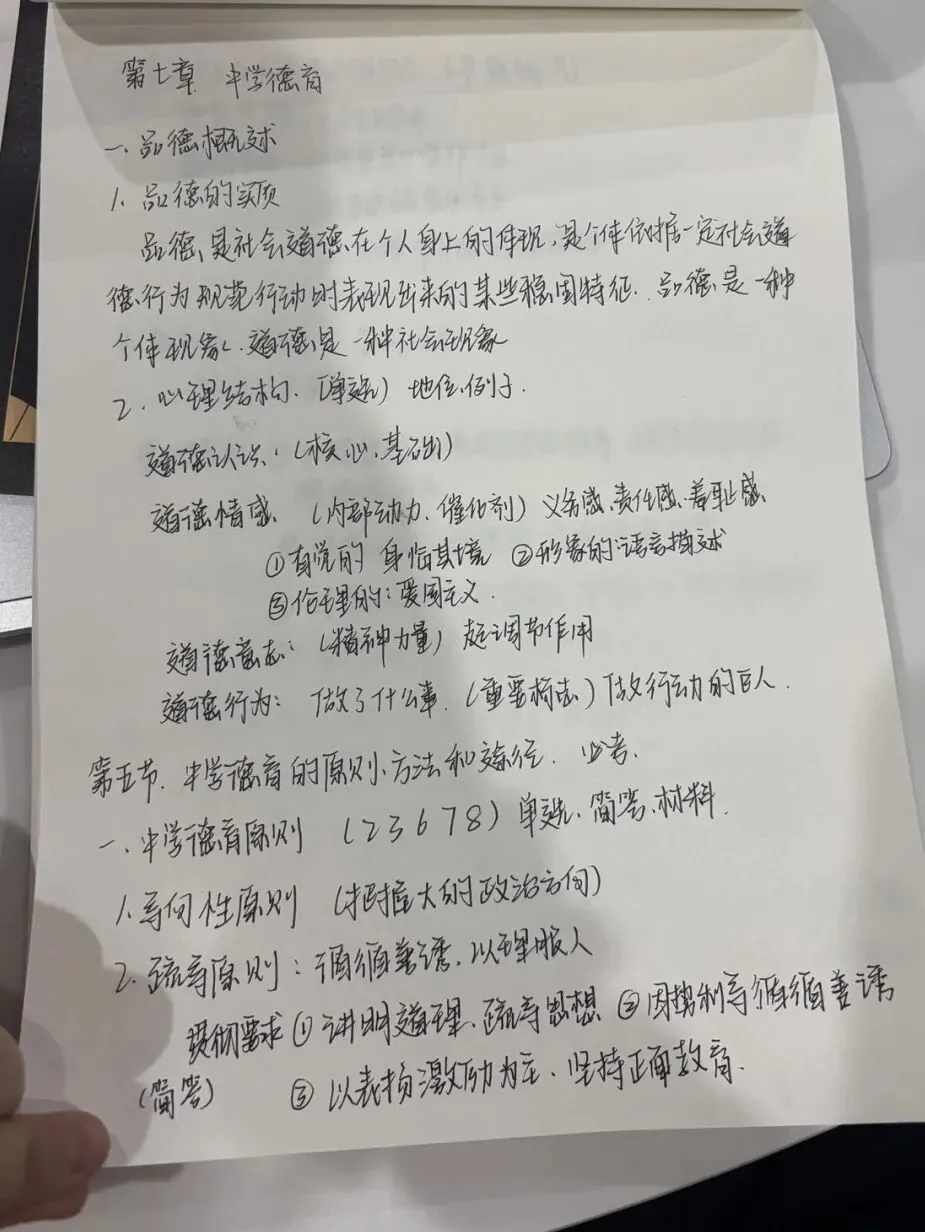 第七章 中学德育
一、品德概述
1. 品德的实质
品德是社会道德在个人身上的体现,是个体依据一定社会道
德行为规范行动时表现出来的某些稳固特征. 品德是一种
个体现象、道德是一种社会现象
2. 心理结构. (单选) 地位、例子.
道德认识: (核心、基础)
道德情感 (内部动力、催化剂) 义务感、责任感、羞耻感
①直觉的 身临其境 ②形象的:语言描述
③伦理的:爱国主义.
道德意志: (精神力量) 起调节作用
道德行为: 做了什么事. (重要标志) 做行动的巨人.
第五节. 中学德育的原则、方法和途径. 必考.
一、中学德育原则 (2 3 6 7 8) 单选、简答、材料
1. 导向性原则 (把握大的政治方向)
2. 疏导原则: 循循善诱、以理服人
贯彻要求 ① 讲明道理、疏导思想 ② 因势利导循循善诱
(简答) ③ 以表扬激励为主、坚持正面教育.